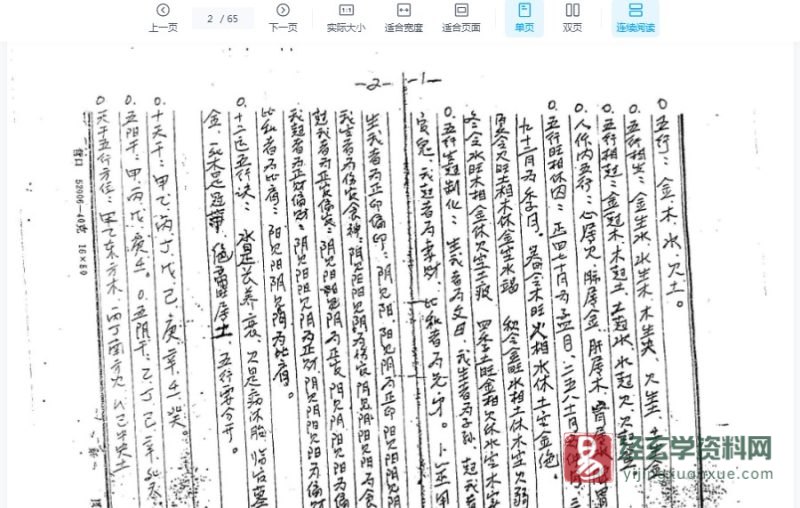 上一页
2 / 65
下一页
实际大小
适合宽度
适合页面
单页
双页
连续阅读
-2-
-1-
0.五行：金、木、水、火、土。
0.五行相生：金生水、水生木、木生火、火生土、土
0.五行相克：金克木、木克土、土克水、水克火、火
0.人体内五行：心属火、肺属金、肝属木、
0.五行旺相休囚：正四七十月为孟月、二五八十月
九十二月为季月。春令木旺火相水休土空金绝。
夏令火旺土相木休金空水弱 秋令金旺水相土休木空火弱
冬令水旺木相金休火空土 四季土旺金相火休水空木
0.五行生克制化：生我者为父母、我生者为子孙、克我者
官鬼、我克者为妻财、比和者为兄弟。
生我者为正印偏印：阴见阳、阳见阴为正印阳见阳阴
我生者为伤官食神：阴见阳阳见阴为伤官阴见阴阳见阳为食
克我者为正官偏官：阴见阳阳见阴为正官阳见阳阴见阴为偏
我克者为正财偏财：阴见阳阳见阴为正财阴见阴阳见阳为偏财
比和者为比肩：阳见阳阴见阴为比肩。
0.十二运五行诀：水是长养衰、火是病沐胎、临官墓
金、死木是冠带、绝帝旺居土、五行要分开。
0.十天干：甲乙丙丁戊己庚辛壬癸。
0.五阳干：甲丙戊庚壬。0.五阴干：乙丁己辛癸
0.天干五行方位：甲乙东方木 丙丁南方火 戊己中央土
52006-40克 16×89
易
易玄学资料网
yijingxuanxue.com